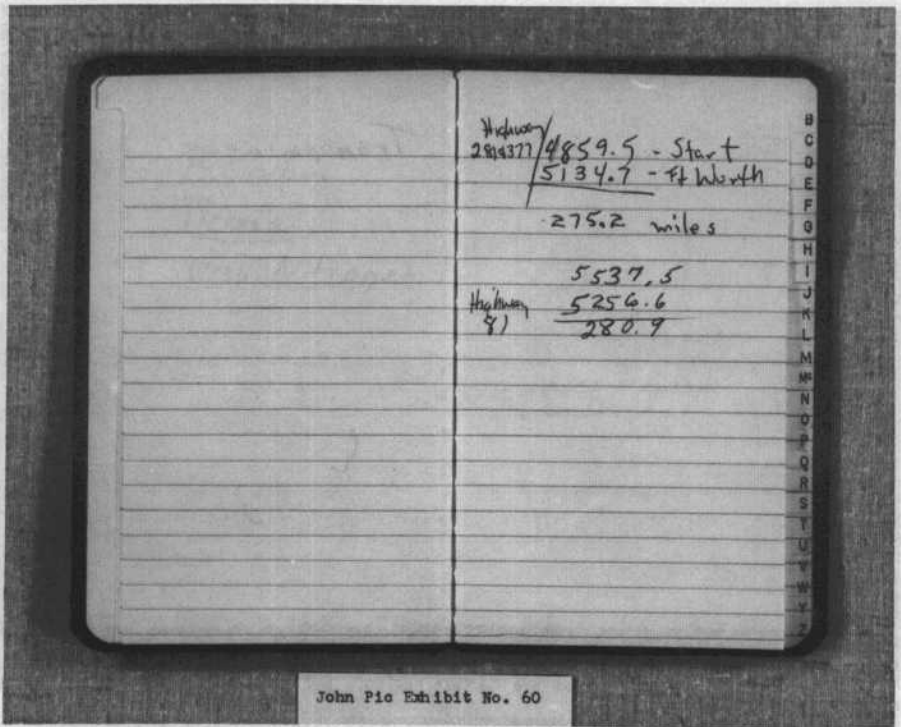 Highway
281&377 4859.5 - Start
5134.7 - Ft Worth
275.2 miles
5537.5
Highway 5256.6
81 280.9
B
C
D
E
F
G
H
I
J
K
L
M
Mc
N
O
P
Q
R
S
T
U
V
W
Y
Z
John Pic Exhibit No. 60